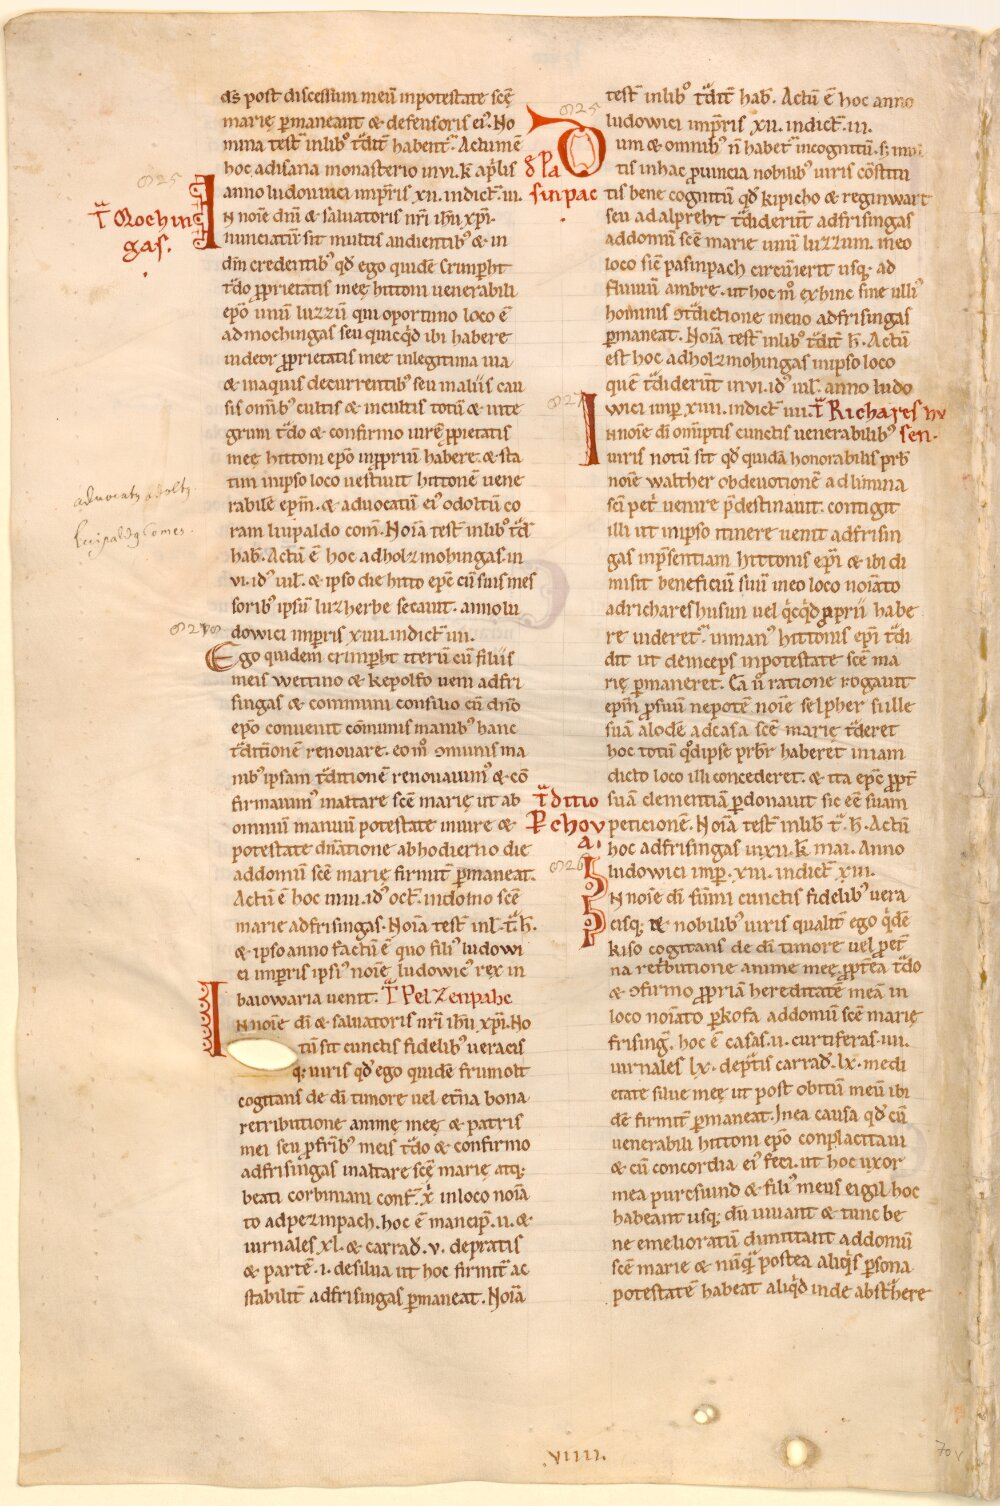 ds̄ post discessum meū inpotestate scē
marię ꝑmaneant & defensoris ei⁹. No
mina test̄ inlib⁹ t̄dit̄ habent̄. Actum ē
hoc adisana monasterio in vi. k̄ ap̄lis
anno ludouuici imp̄ris xii. indict̄. iii.
T̄ Mochin
gas.
IN noīe dnī & saluatoris nr̄i ihū xp̄i.
Nunciatū sit multis audientib⁹ & in
dm̄ credentib⁹ qđ ego quidē Crimp̄ht
t̄do ꝓprietatis meę hittoni uenerabili
ep̄o unū luzzū qui oportuno loco ē
admochingas seu quicq̄d ibi habere
uideor ꝓprietatis mee inlegitima uia
& inaquis decurrentib⁹ seu maluis cau
sis om̄ib⁹ cultis & incultis totū & inte
grum t̄do & confirmo iure ꝓprietatis
meę hittoni ep̄o inꝓpriū habere. & sta
tim inipso loco uestiuit hittonē uene
rabilē ep̄m. & aduocatū ei⁹ odoltū co
ram liupaldo com̄. Noīa test̄ inlib⁹ t̄d
aduocat⁹ odolt⁹
Liupald⁹ comes.
hab̄. Actū ē hoc adholzmohingas. in
vi. id⁹ iul̄. & ipso die hitto ep̄c cū suis mes
sorib⁹ ipsū luz herbe secauit. anno lu
dowici imp̄ris xiiii. indict̄. iiii.
Ego quidem crimp̄ht iterū cū filiis
meis wettino & kepolfo ueni adfri
singas & communi consilio cū dnō
ep̄o conuenit cōmunis manib⁹ hanc
t̄ditionē renouare. eo m̄ ꝯmunis ma
nib⁹ ipsam t̄ditionē renouauim⁹ & cō
firmauim⁹ inaltare scē marię ut ab
omniū manuū potestate iniure &
potestate dn̄atione abhodierno die
addomū scē marię firmit̄ ꝑmaneat.
Actū ē hoc iniiii. id⁹ oct̄. indomo scē
marie adfrisingas. Noīa test̄ inl̄. t̄. h̄.
& ipso anno factū ē quo fili⁹ ludowi
ci imp̄ris ipsi⁹ noīe ludowic⁹ rex in
baiowaria uenit. T̄ Pelzenpahc
IN noīe dī & saluatoris nr̄i ihū xp̄i. No
tū sit cunctis fidelib⁹ ueracis
q; uiris qđ ego quidē frumolt
cogitans de dī timore uel et̄na bona
retributione animę meę & patris
mei seu ꝓfrīb⁹ meis t̄do & confirmo
adfrisingas inaltare scē marię atq;
beati corbiniani conf̄. x̄ inloco noīa
to adpezinpach. hoc ē mancip̄. ii. &
iurnales xl. & carrad̄. v. depratis
& partē. i. desilua ut hoc firmit̄ ac
stabilit̄ adfrisingas ꝑmaneat. Noīa
test̄ inlib⁹ t̄dit̄ hab̄. Actū ē hoc anno
ludowici imp̄ris xii. indict̄. iii.
Pa
sinpac
Dum & omnib⁹ n̄ habet̄ incognitū. s;
tis inhac ꝓuincia nobilib⁹ uiris cōstitu
tis bene cognitū qđ kipicho & reginwart
seu adalpreht t̄diderūt adfrisingas
addomū scē marie unū luzzum. in eo
loco sic̄ pasinpach circūierit usq; ad
fluuiū ambre. ut hoc m̄ exhinc sine ulli⁹
hominis ꝯt̄dictione in euo adfrisingas
ꝑmaneat. Noīa test̄ inlib⁹ t̄dit̄ h̄. Actū
est hoc adholzmohingas inipso loco
quē t̄diderūt in vi. id⁹ iul̄. anno ludo
wici imp̄ xiiii. indict̄ iiii. T̄ Richareshu
sen.
IN noīe dī om̄iptis cunctis uenerabilib⁹
uiris notū sit qđ quidā honorabilis prb̄
noīe walther obdeuotionē adlimina
scī pet̄ uenire p̄destinauit. contigit
illi ut inipso itinere uenit adfrisin
gas inp̄sentiam hittonis ep̄i & ibi di
misit beneficiū suū ineo loco noīato
adrichareshusun uel q̄cq̄d ꝓprii habe
re uideret̄. inman⁹ hittonis ep̄i t̄di
dit ut deinceps inpotestate scē ma
rię ꝑmaneret. Eā ū ratione rogauit
ep̄m ꝓsuū nepotē noīe selpher sulle
suā alodē adcasa scē marię t̄deret
hoc totū qđ ipse prb̄r haberet iniam
dicto loco illi concederet. & ita ep̄c ꝓpt̄
suā clementiā ꝑdonauit sic eē suam
peticionē. Noīa test̄ inlib̄ t̄. h̄. Actū
hoc adfrisingas inxii. k̄ mai. Anno
ludowici imp̄. xiii. indict̄ xiii.
T̄ditio
Pchov
a.
IN noīe dī sūmi cunctis fidelib⁹ uera
cisq; & nobilib⁹ uiris qualit̄ ego q̄dē
kiso cogitans de dī timore uel ꝓ et̄
na ret̄butione anime meę ꝓpt̄ea t̄do
& ꝯfirmo ꝓpriā hereditatē meā in
loco noīato ꝑkofa addomū scē marię
frisinḡ. hoc ē casas. ii. curtiferas. iii.
iurnales lx. dep̄tis carrad̄. lx. medi
etatē siluę meę ut post obitū meū ibi
dē firmit̄ ꝑmaneat. Inea causa qđ cū
uenerabili hittoni ep̄o conplacitaui
& cū concordia ei⁹ feci. ut hoc uxor
mea purcsuind & fili⁹ meus eigil hoc
habeant usq; dū uiuant & tunc be
ne emelioratū dimittant addomū
scē marie & nūq̄ postea aliq̄s ꝑsona
potestatē habeat aliq̄d inde abst̄here
.viiii.
70v